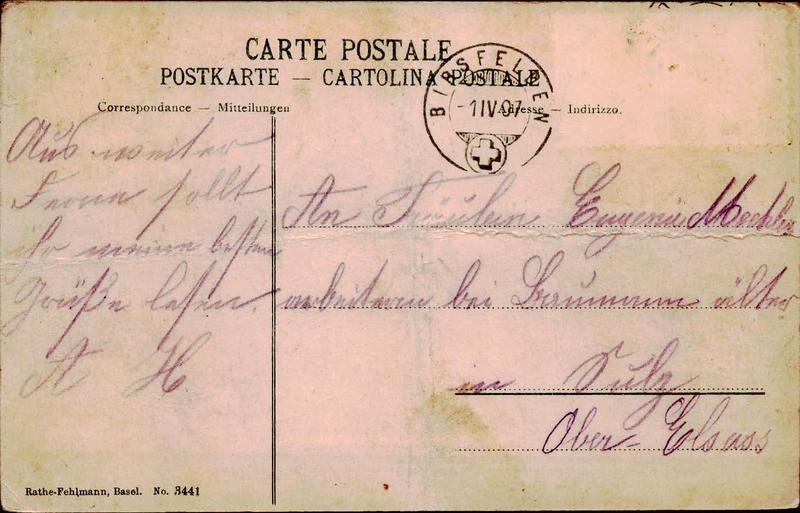 CARTE POSTALE
POSTKARTE — CARTOLINA POSTALE
BIRSFELDEN
-1IV.07
Correspondance — Mitteilungen
Adresse — Indirizzo.
Aus weiter
Ferne sollt
ihr meine besten
Grüße lesen.
A H
An Fräulein Eugenie
arbeiterin bei Baumann älter
in Sulz
Ober-Elsass
Rathe-Fehlmann, Basel. No. 3441